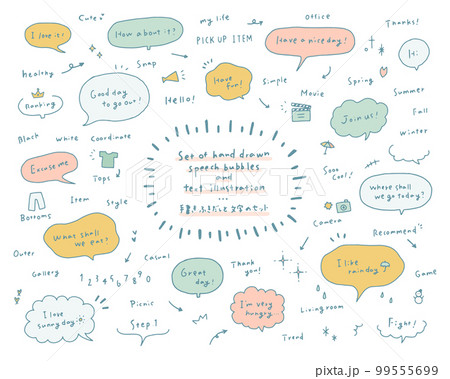 I like it!
Cute!
How about it?
my life
PICK UP ITEM
Office
Have a nice day!
Thanks!
Hi
healthy
Ranking
Snap
Good day
to go out!
Hello!
Have
fun!
Simple
Movie
Spring
Summer
Fall
Winter
Join us!
Black
White
Coordinate
Excuse me
Tops
Set of hand drawn
speech bubbles
and
text illustration
手書きふきだしと文字のセット
Sooo
Cool!
Where shall
we go today?
Bottoms
Item
Style
Camera
Recommend
What shall
we eat?
Outer
Gallery
1 2 3 4 5 6 7 8 9 0
Casual
Great
day!
Thank
you!
I like
rainday
Game
I love
sunny day
Picnic
Step 1
I'm very
hungry
Livingroom
Trend
Fight!
PIXTA
99555699